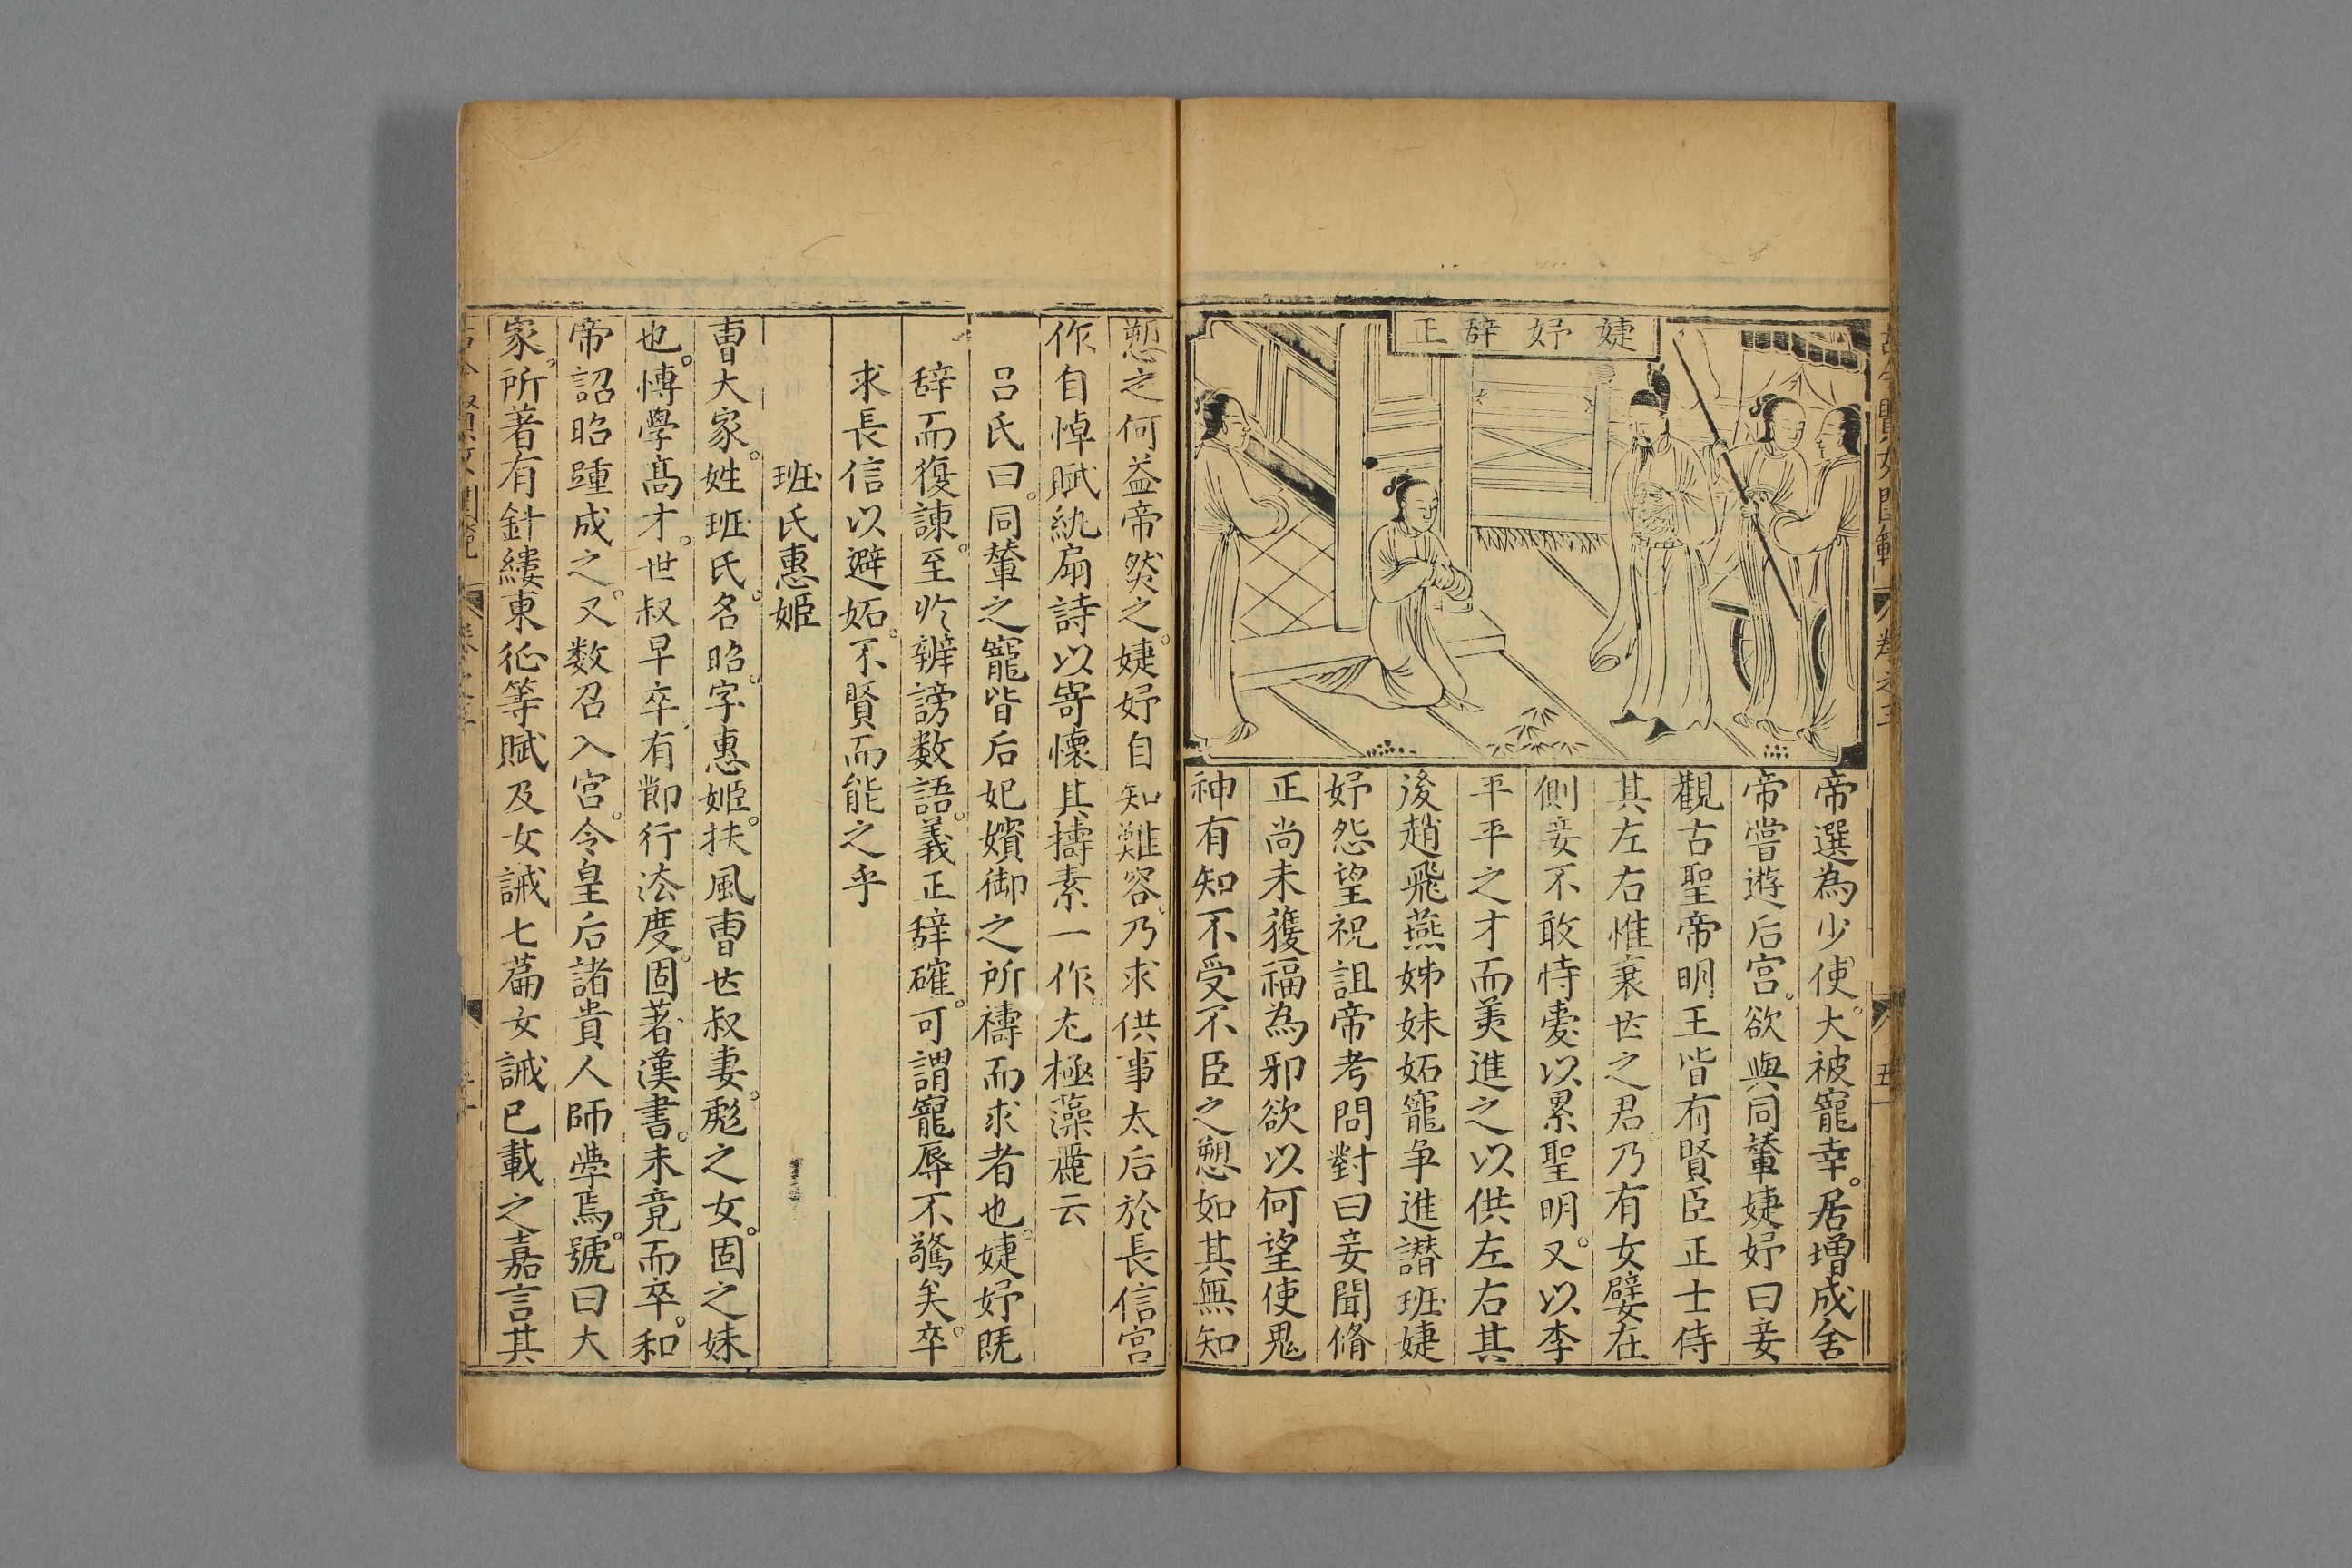 婕妤辞正
帝選為少使大被寵幸居增成舍
帝嘗遊后宮欲與同輦婕妤曰妾
觀古聖帝明王皆有賢臣正士侍
其左右惟衰世之君乃有女嬖在
側妾不敢恃愛以累聖明又以李
平平之才而美進之以供左右其
後趙飛燕姊妹妬寵争進譖班婕
妤怨望祝詛帝考問對曰妾聞脩
正尚未獲福為邪欲以何望使鬼
神有知不受不臣之愬如其無知
愬之何益帝然之婕妤自知難容乃求供事太后於長信宮
作自悼賦紈扇詩以寄懷其擣素一作尤極藻麗云
呂氏曰同輦之寵皆后妃嬪御之所禱而求者也婕妤既
辞而復諫至於辨謗数語義正辞確可謂寵辱不驚矣卒
求長信以避妬不賢而能之乎
班氏惠姬
曹大家姓班氏名昭字惠姬扶風曹世叔妻彪之女固之妹
也博學高才世叔早卒有節行法度固著漢書未竟而卒和
帝詔昭踵成之又数召入宮令皇后諸貴人師學焉號曰大
家所著有針縷東征等賦及女誡七篇女誡已載之嘉言其